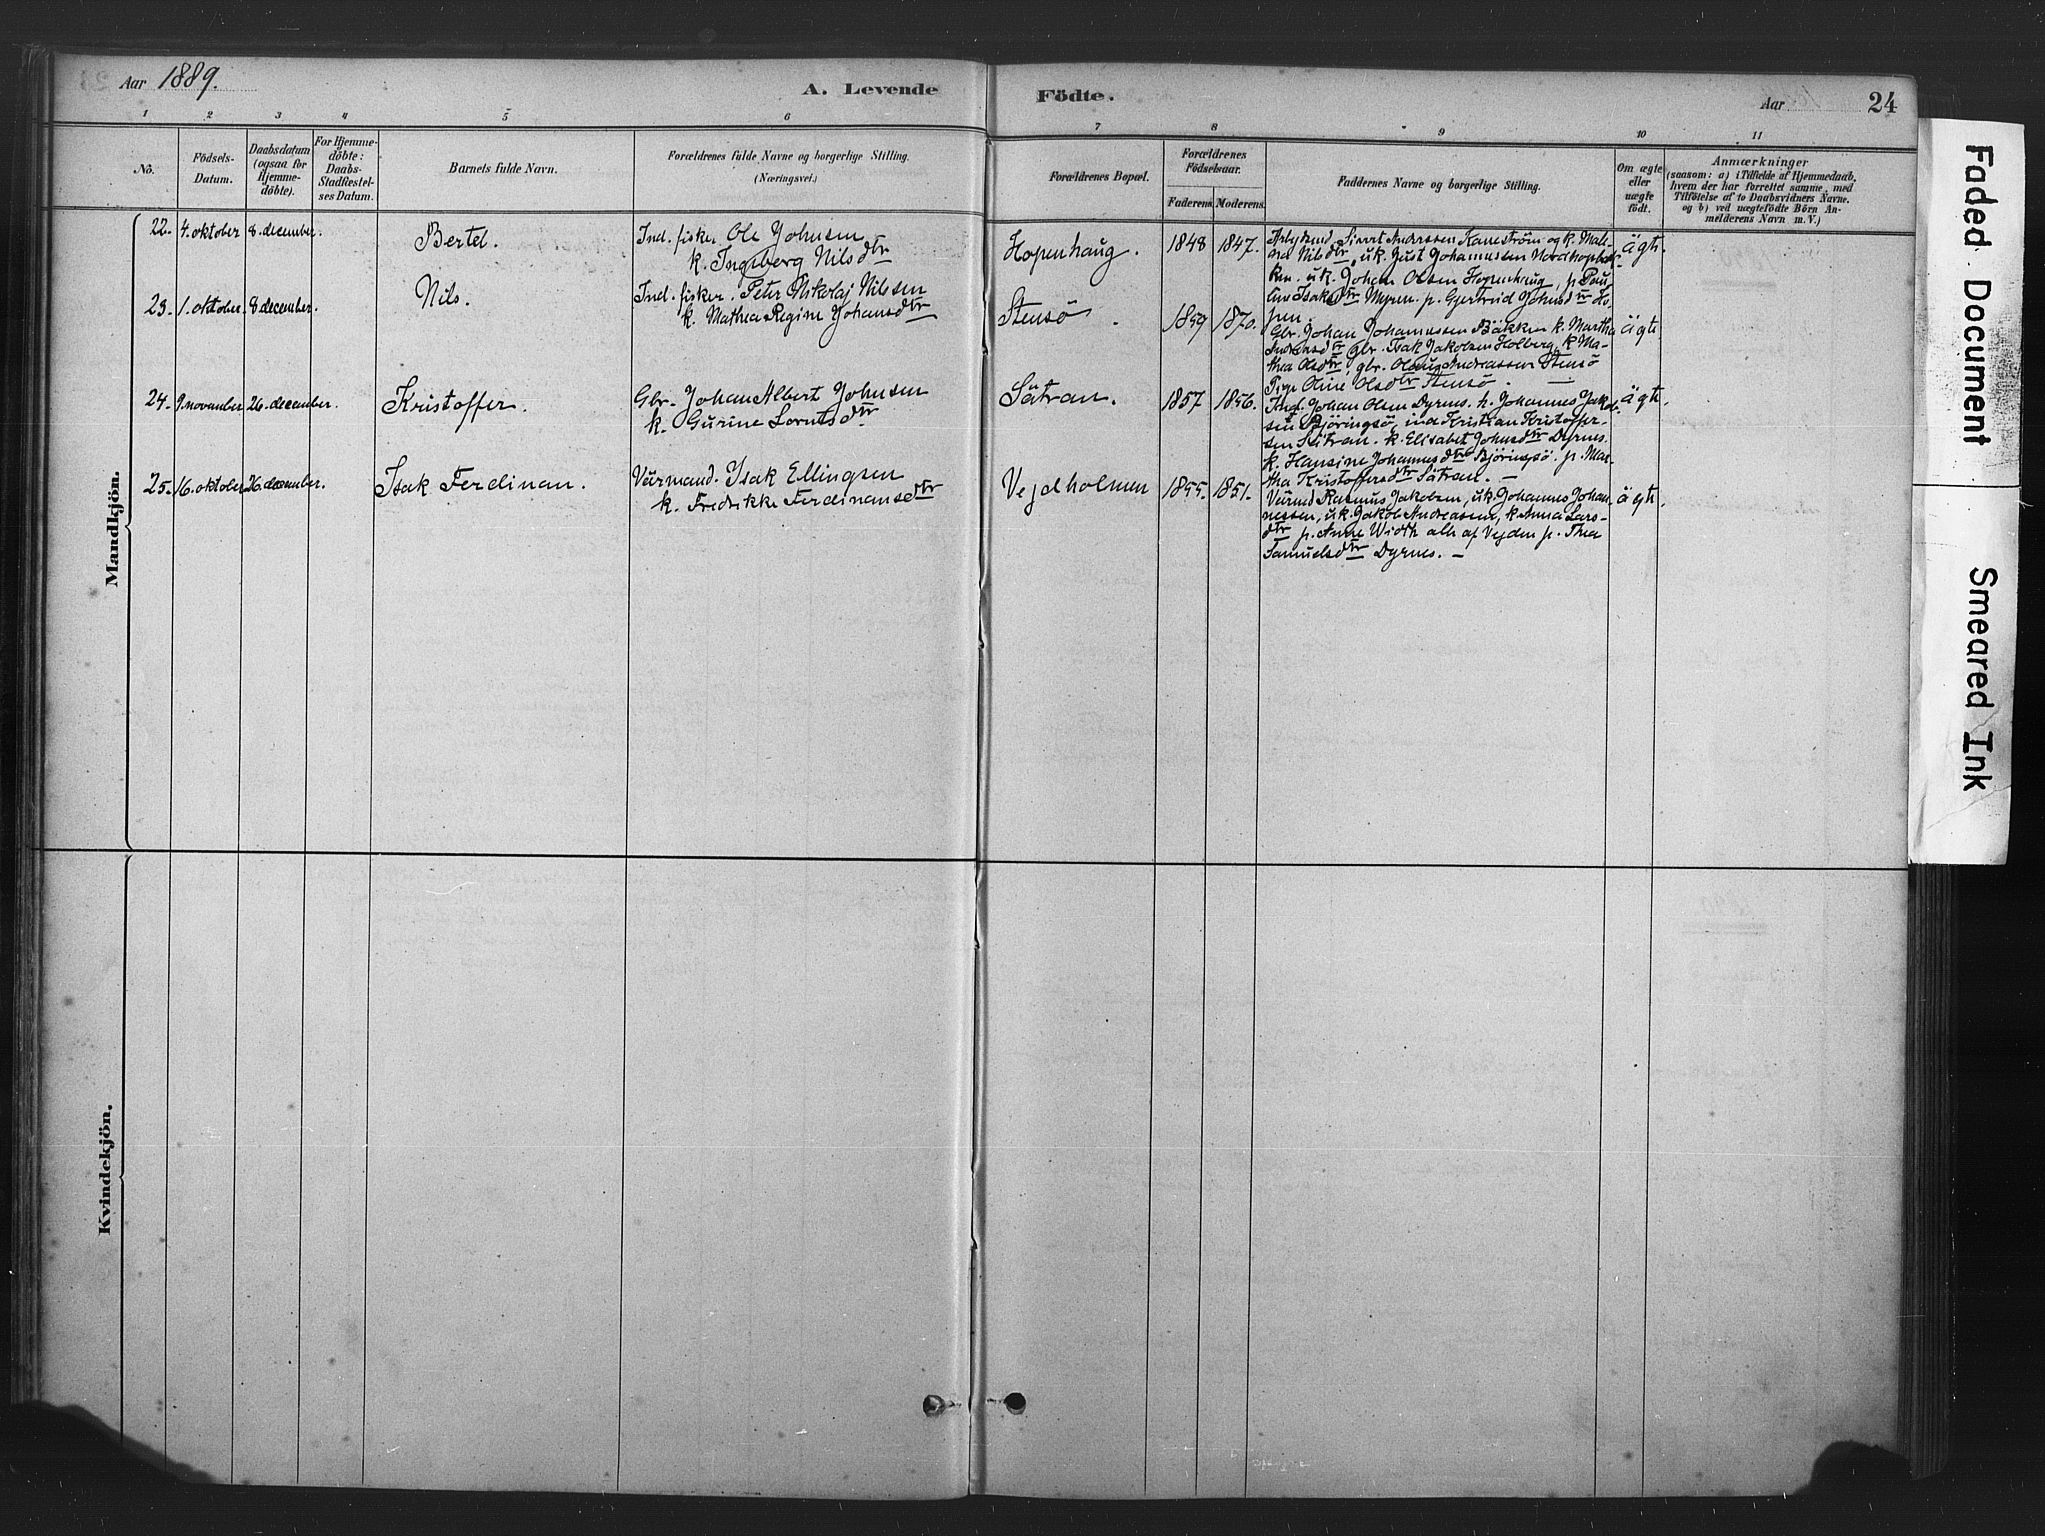 Aar 1889.
A. Levende
Födte.
Aar
24
1 2 3 4 5 6 7 8 9 10 11
No.
Födsels-
Datum.
Daabsdatum
(ogsaa for
Hjemme-
döbte).
For Hjemme-
döbte:
Daabs-
Stadfæstel-
ses Datum.
Barnets fulde Navn.
Forældrenes fulde Navne og borgerlige Stilling.
(Næringsvei.)
Forældrenes Bopæl.
Forældrenes
Födselsaar.
Faderens. Moderens.
Faddernes Navne og borgerlige Stilling.
Om ægte
eller
uægte
födt.
Anmærkninger
(saasom: a) i Tilfælde af Hjemmedaab,
hvem der har forrettet samme, med
Tilföielse af to Daabsvidners Navne.
og b) ved uægtefödte Börn An-
melderens Navn m. V.)
Mandkjön.
22. 4. oktober 8. december. Bertel.
Ind. fisker Ole Johnsen
k. Ingeberg Nilsdtr
Hopenhaug. 1848 1847.
Arbejdsmd Sivert Andersen Kaneström og k. Male-
na Nilsdtr, uk. Just Johannessen Nordhopbak-
ken. uk. Johan Olsen Hopenhaug, p. Paul-
ine Isaksdtr Myren. p. Gjertrud Johnsdtr Ho-
pen.
ägte.
23. 1. oktober. 8 december. Nils.
Ind. fisker. Peter Nikolaj Nilssen
k. Mathea Regine Johansdtr
Stensö. 1859 1870.
Gbr. Johan Johannessen Bäkken k. Martha
Andersdtr, Gbr. Isak Jakobsen Holberg, k Ma-
thea Olsdtr, gbr. Olaus Andreassen Stensö
Pige Oline Olsdtr Stensö. —
ägte
24. 9. november 26. december. Kristoffer.
Gbr. Johan Albert Johnsen
k. Gurine Lorntsdtr
Sätran. 1857 1856.
Ind. Johan Olsen Dyrnes. h. Johannes Jakob-
sen Björingsö, ind Kristian Kristoffer-
sen Sätran. k. Elisabet Johnsdtr Dyrnes.
k. Hansine Johannesdtr Björingsö. p. Mar-
tha Kristoffersdtr Sätran. —
ägte.
25. 16. oktober. 26. december. Isak Ferdinan.
Värmand. Isak Ellingsen
k. Fredrikke Ferdinansdtr
Vejdholmen 1855. 1851.
Värmd Rasmus Jakobsen, uk. Johannes Johan-
nessen, uk. Jakob Andreassen, k. Anna Lars-
dtr p. Anne Width alle af Vejden p. Thea
Samuelsdtr Dyrnes. —
ägte.
Kvindekjön.
Faded Document
Smeared Ink